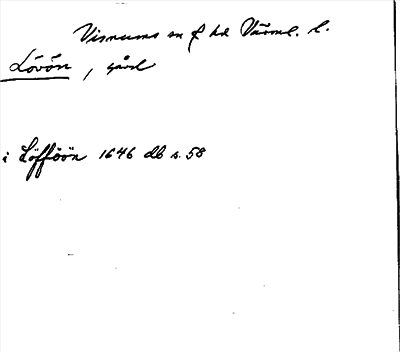 Visnums sn f hd Värml. l.
Lövön, gård
i Löfföön 1646 db s. 58